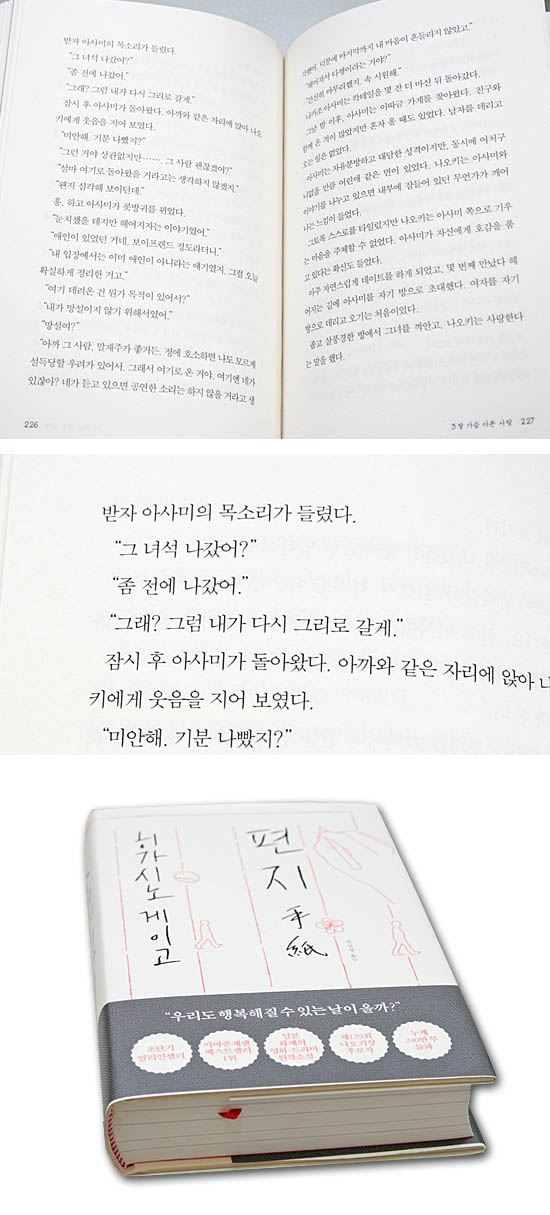 받자 아사미의 목소리가 들렸다.
“그 녀석 나갔어?”
“좀 전에 나갔어.”
“그래? 그럼 내가 다시 그리로 갈게.”
잠시 후 아사미가 돌아왔다. 아까와 같은 자리에 앉아 나오
키에게 웃음을 지어 보였다.
“미안해. 기분 나빴지?”
“그런 거야 상관없지만……. 그 사람 괜찮겠어?”
“설마 여기로 돌아왔을 거라고는 생각하지 않겠지.”
“왠지 심각해 보이던데.”
흥, 하고 아사미가 콧방귀를 뀌었다.
“눈치챘을 테지만 헤어지자는 이야기였어.”
“애인이 있었던 거네. 보이프렌드 정도라더니.”
“내 입장에서는 이미 애인이 아니라는 얘기였지. 그걸 오늘
확실하게 정리한 거고.”
“여기 데려온 건 뭔가 목적이 있어서?”
“내가 망설이지 않기 위해서였어.”
“망설여?”
“아까 그 사람, 말재주가 좋거든. 정에 호소하면 나도 모르게
설득당할 우려가 있어서. 그래서 여기로 온 거야. 여기엔 네가
있잖아? 네가 듣고 있으면 공연한 소리는 하지 않을 거라고 생
226
각했어. 덕분에 마지막까지 내 마음이 흔들리지 않았고.”
“헤어져서 다행이라는 거야?”
“간신히 마무리했지. 속 시원해.”
나카조 아사미는 칵테일을 몇 잔 더 마신 뒤 돌아갔다.
그날 밤 이후, 아사미는 이따금 가게를 찾아왔다. 친구와
함께 온 적이 많았지만 혼자 올 때도 있었다. 남자를 데리고
오는 일은 없었다.
아사미는 자유분방하고 대담한 성격이지만, 동시에 어처구
니없을 만큼 어린애 같은 면이 있었다. 나오키는 아사미와
이야기를 나누고 있으면 내부에 잠들어 있던 무언가가 깨어
나는 느낌이 들었다.
그토록 스스로를 타일렀지만 나오키는 아사미 쪽으로 기우
는 마음을 주체할 수 없었다. 아사미가 자신에게 호감을 품
고 있다는 확신도 들었다.
아주 자연스럽게 데이트를 하게 되었고, 몇 번째 만났다 헤
어지는 길에 아사미를 자기 방으로 초대했다. 여자를 자기
방으로 데리고 오기는 처음이었다.
좁고 살풍경한 방에서 그녀를 껴안고, 나오키는 사랑한다
는 말을 했다.
3장 가슴 아픈 사랑 227
받자 아사미의 목소리가 들렸다.
“그 녀석 나갔어?”
“좀 전에 나갔어.”
“그래? 그럼 내가 다시 그리로 갈게.”
잠시 후 아사미가 돌아왔다. 아까와 같은 자리에 앉아 나
키에게 웃음을 지어 보였다.
“미안해. 기분 나빴지?”
편지
手紙
히가시노 게이고
“우리도 행복해질 수 있는 날이 올까?”
초단기
밀리언셀러
아마존재팬
베스트셀러
1위
일본
화제의
영화·드라마
원작소설
제129회
나오키상
후보작
누계
240만 부
돌파